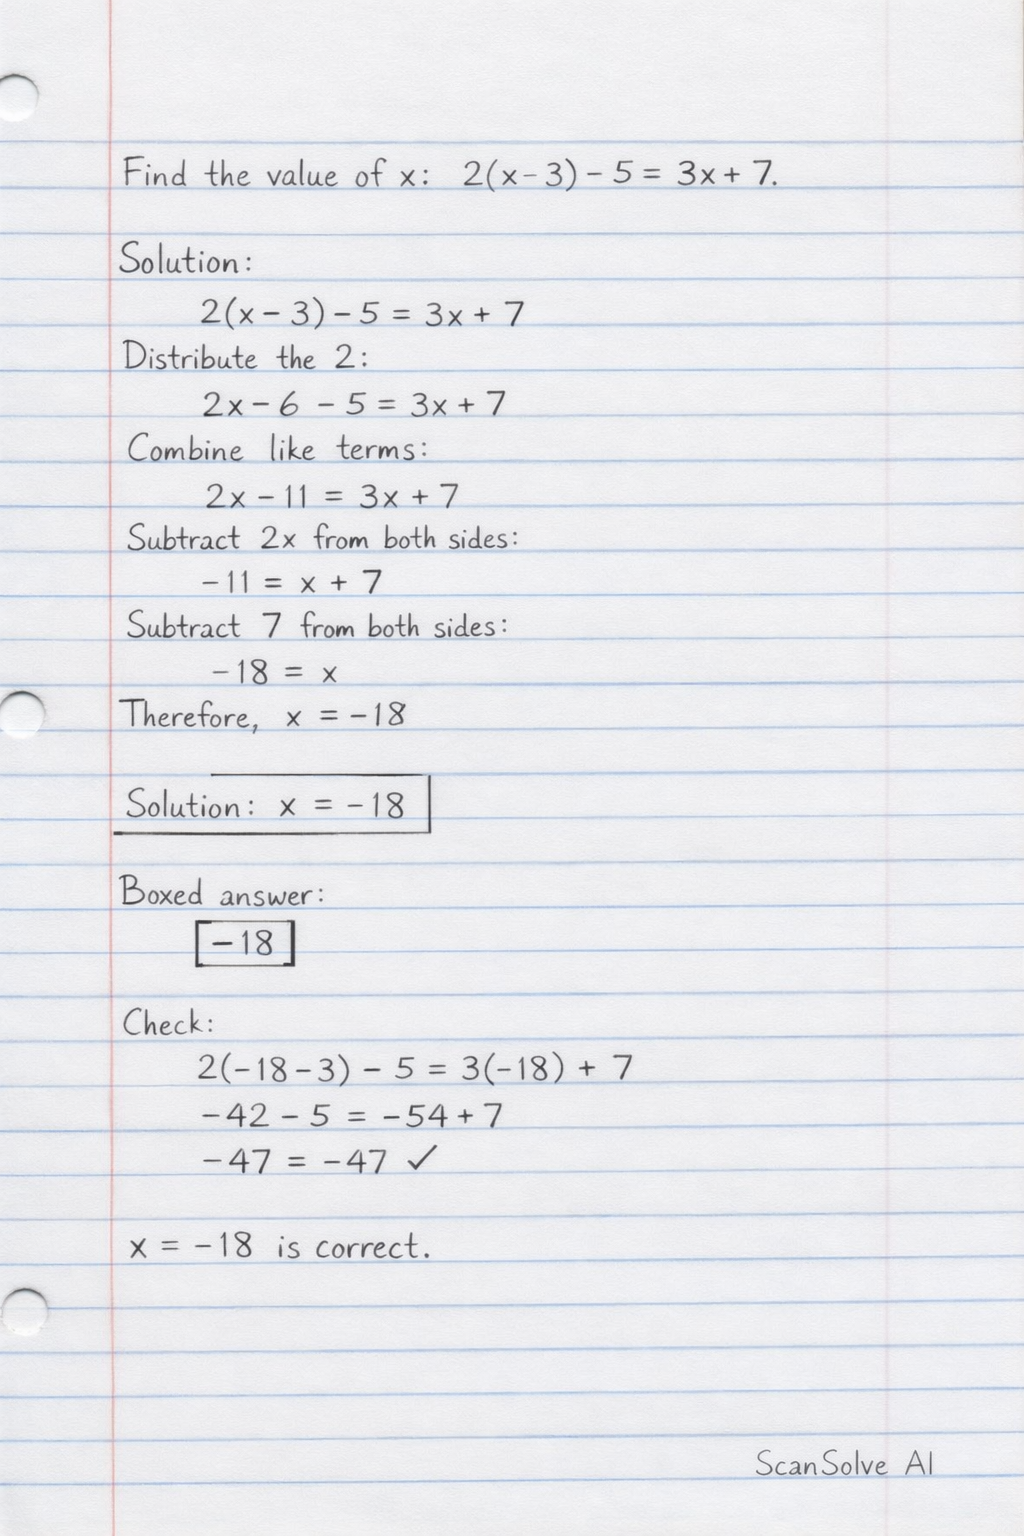 Find the value of x: 2(x-3) - 5 = 3x + 7.
Solution:
2(x - 3) - 5 = 3x + 7
Distribute the 2:
2x - 6 - 5 = 3x + 7
Combine like terms:
2x - 11 = 3x + 7
Subtract 2x from both sides:
-11 = x + 7
Subtract 7 from both sides:
-18 = x
Therefore, x = -18
Solution: x = -18
Boxed answer:
-18
Check:
2(-18-3) - 5 = 3(-18) + 7
-42 - 5 = -54 + 7
-47 = -47 ✓
x = -18 is correct.
ScanSolve AI